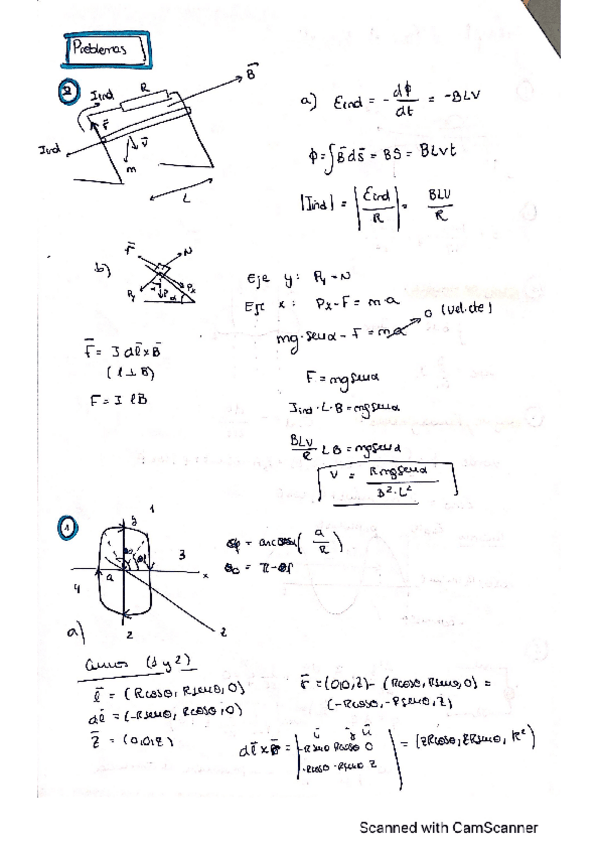 Problemas
2
Iind
R
B⃗
F⃗
V⃗
Iind
m
L
a) Eind = - dϕ/dt = -BLV
ϕ = ∫B⃗ds⃗ = BS = BLvt
|Iind| = |Eind/R| = BLV/R
b)
F⃗
N
Py
P
Px
α
Eje y: Py = N
Eje x: Px - F = m·a
mg·senα - F = ma → 0 (vel. cte)
F⃗ = I dl⃗ x B⃗
(l ⊥ B)
F = I l B
F = mgsenα
Iind · L · B = mgsenα
BLV/R LB = mgsenα
V = Rmgsenα / B²·L²
1
1
y
3
x
a
4
2
z
θf = arccos(a/R)
θo = π - θf
a)
Curvos (1 y 2)
l⃗ = (Rcosθ, Rsenθ, 0)
dl⃗ = (-Rsenθ, Rcosθ, 0)
z⃗ = (0,0,z)
r⃗ = (0,0,z) - (Rcosθ, Rsenθ, 0) =
(-Rcosθ, -Rsenθ, z)
dl⃗ x r⃗ = | i j u |
-Rsenθ Rcosθ 0
-Rcosθ -Rsenθ z
= (zRcosθ, zRsenθ, R²)
Scanned with CamScanner